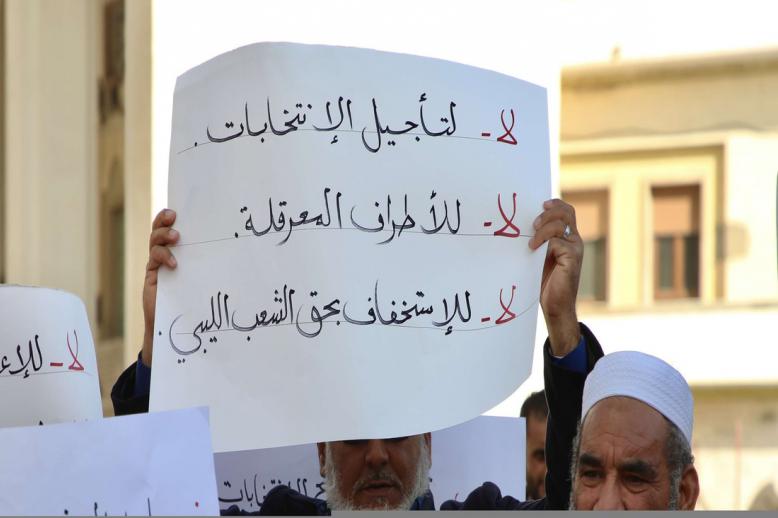 لا - لتأجيل الإنتخابات .
لا - للأطراف المعرقلة .
لا - للإستخفاف بحق الشعب الليبي .
لا -